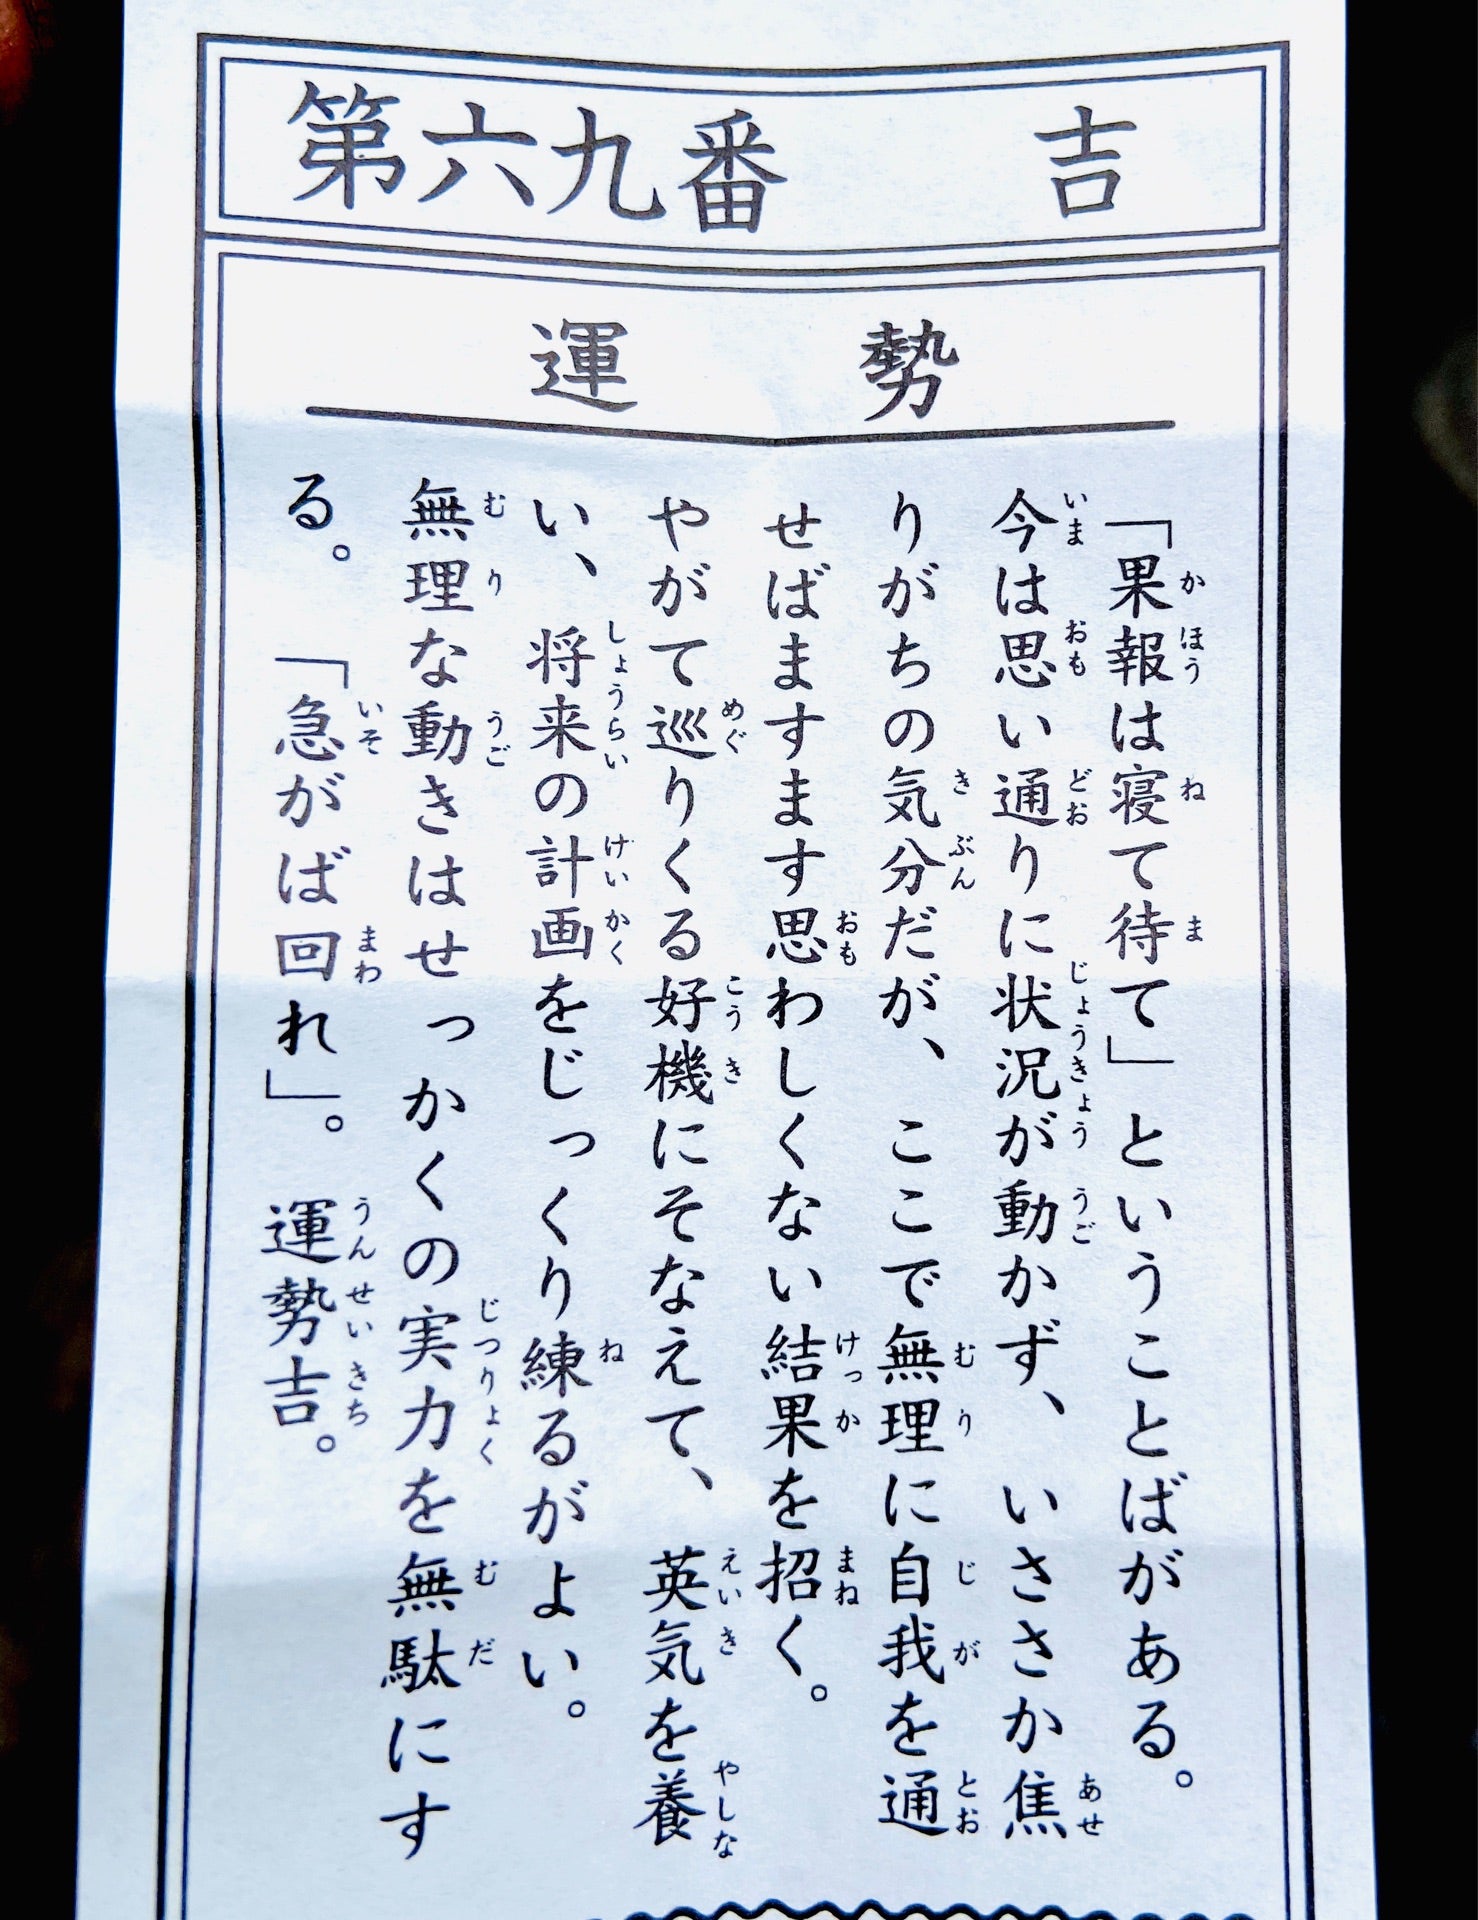 第六九番 吉
運勢
「果報は寝て待て」ということばがある。
今は思い通りに状況が動かず、いささか焦
りがちの気分だが、ここで無理に自我を通
せばますます思わしくない結果を招く。
やがて巡りくる好機にそなえて、英気を養
い、将来の計画をじっくり練るがよい。
無理な動きはせっかくの実力を無駄にす
る。「急がば回れ」。運勢吉。